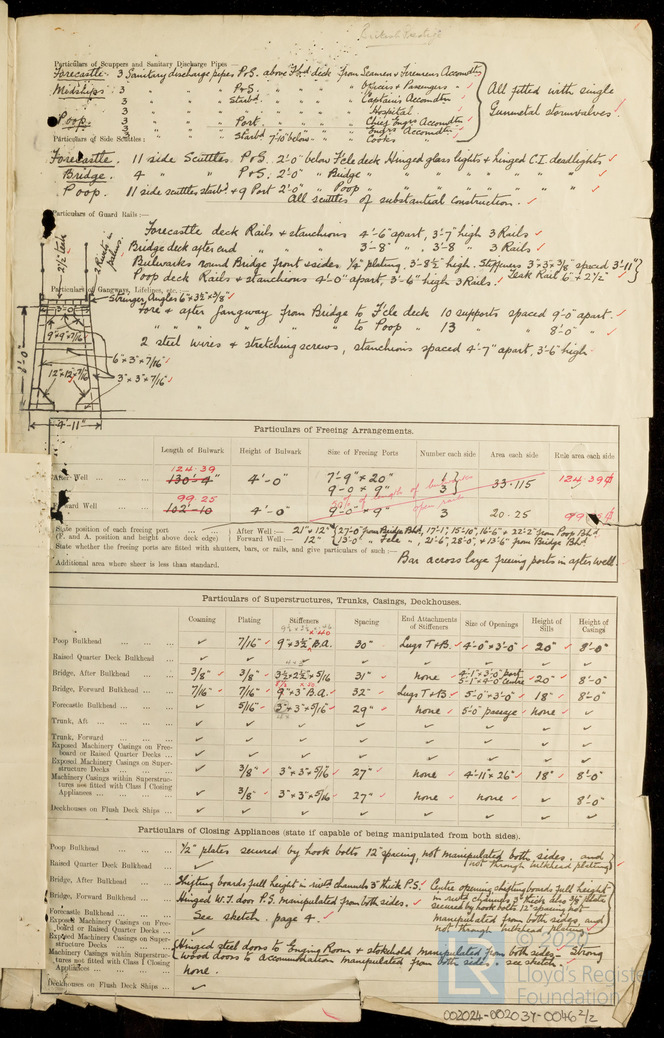 Particulars of Scuppers and Sanitary Discharge Pipes —
Forecastle. 3 Sanitary discharge pipes P&S. above F'b'd deck from Seamen & Firemens Accomdtn
Midships: 3 " " " P&S. " " Officers & Passengers "
3 " " " Starbd. " " Captains Accomdtn
3 " " " " " Hospital
Poop. 3 " " " Port. " " Chief Engrs Accomdtn
3 " " " Starbd 7'-10" below " Engrs Accomdtn
Cooks "
All fitted with single
Gunmetal stormvalves.
Particulars of Side Scuttles :—
Forecastle. 11 side Scuttles. P&S. 2'-0" below F'cle deck Hinged glass lights & hinged C.I. deadlights
Bridge. 4 " " P&S. 2'-0" " Bridge " " " " " "
Poop. 11 side scuttles starbd. & 9 Port 2'-0" " Poop " " " " " "
All scuttles of substantial construction.
Particulars of Guard Rails :—
Forecastle deck Rails & stanchions 4'-6" apart, 3'-7" high 3 Rails
Bridge deck after end " " " 3'-8" " , 3'-8 " 3 Rails
Bulwarks round Bridge front & sides. 1/4" plating, 3'-8½" high. Stiffeners 3"×3"×3/8" spaced 3'-11"
Poop deck Rails & stanchions 4'-0" apart, 3'-6" high 3 Rails. Teak Rail 6" × 2½"
Particulars of Gangways, Lifelines, etc. :—
Stringer Angles 6"×3½"×3/8"
Fore & after gangway from Bridge to F'cle deck 10 supports spaced 9'-0" apart.
" " " " " to Poop " 13 " " 8'-0" "
2 steel wires & stretching screws, stanchions spaced 4'-7" apart, 3'-6" high
2½" teak
3'-0"
9"×9"×7/16"
6"×3"×7/16"
12"×12"×7/16"
3"×3"×7/16"
8'-0"
4'-11"
Particulars of Freeing Arrangements.
Length of Bulwark Height of Bulwark Size of Freeing Ports Number each side Area each side Rule area each side
After Well 124.39 130'-4" 4'-0" 7'-9" × 20" 1 33.115 124.39
9'-0 × 9" 3
Forward Well 99.25 102'-10 4'-0" 9'-0" × 9" 3 20.25 99
State position of each freeing port (F. and A. position and height above deck edge)
After Well :— 21" & 12" 27'-0" from Bridge Bhd, 17'-1", 15'-10", 16'-6" & 22'-2" from Poop Bhd.
Forward Well :— 12" 13'-0" " F'cle " , 21'-6", 28'-0", & 13'-6" from Bridge Bhd.
State whether the freeing ports are fitted with shutters, bars, or rails, and give particulars of such :—
Bar across large freeing ports in after well.
Additional area where sheer is less than standard.
Particulars of Superstructures, Trunks, Casings, Deckhouses.
Coaming Plating Stiffeners Spacing End Attachments of Stiffeners Size of Openings Height of Sills Height of Casings
Poop Bulkhead ✓ 7/16" 9"×3½" B.A. 30" Lugs T&B. 4'-0"×3'-0" 20" 8'-0"
Raised Quarter Deck Bulkhead ✓ ✓ ✓ ✓ ✓ ✓ ✓ ✓
Bridge, After Bulkhead 3/8" 3/8" 3½×2½×5/16 31" none 4'-1"×3'-0" port 20" 8'-0"
5'-1"×4'-0" Centre
Bridge, Forward Bulkhead 7/16" 7/16" 9"×3" B.A. 32" Lugs T&B 5'-0"×3'-0" 18" 8'-0"
Forecastle Bulkhead ✓ 5/16" 3"×3"×5/16 29" none 5'-0" passage none ✓
Trunk, Aft ✓ ✓ ✓ ✓ ✓ ✓ ✓ ✓
Trunk, Forward ✓ ✓ ✓ ✓ ✓ ✓ ✓ ✓
Exposed Machinery Casings on Freeboard or Raised Quarter Decks ✓ ✓ ✓ ✓ ✓ ✓ ✓ ✓
Exposed Machinery Casings on Superstructure Decks ✓ 3/8" 3"×3"×5/16 27" none 4'-11×26" 18" 8'-0"
Machinery Casings within Superstructures not fitted with Class I Closing Appliances ✓ 3/8" 3"×3"×5/16 27" none none ✓ 8'-0"
Deckhouses on Flush Deck Ships ✓ ✓ ✓ ✓ ✓ ✓ ✓ ✓
Particulars of Closing Appliances (state if capable of being manipulated from both sides).
Poop Bulkhead ½" plates secured by hook bolts 12" spacing, not manipulated both sides. and
(not through bulkhead plating)
Raised Quarter Deck Bulkhead ✓
Bridge, After Bulkhead Shifting boards full height in channels 3" thick P.S. Centre opening shifting boards full height
in channels 3" thick also 3/8" plates
Bridge, Forward Bulkhead Hinged W.T. door P.S. manipulated from both sides. secured by hook bolts 12" spacing not
Forecastle Bulkhead See sketch. page 4. manipulated from both sides and
not through bulkhead plating
Exposed Machinery Casings on Freeboard or Raised Quarter Decks ✓
Exposed Machinery Casings on Superstructure Decks Hinged steel doors to Engine Room & stokehold manipulated from both sides – Strong
wood doors to accommodation manipulated from both sides. see sketch.
Machinery Casings within Superstructures not fitted with Class I Closing Appliances none.
Deckhouses on Flush Deck Ships ✓
© 2021
Lloyd's Register
Foundation
002024-002034-0046 2/2